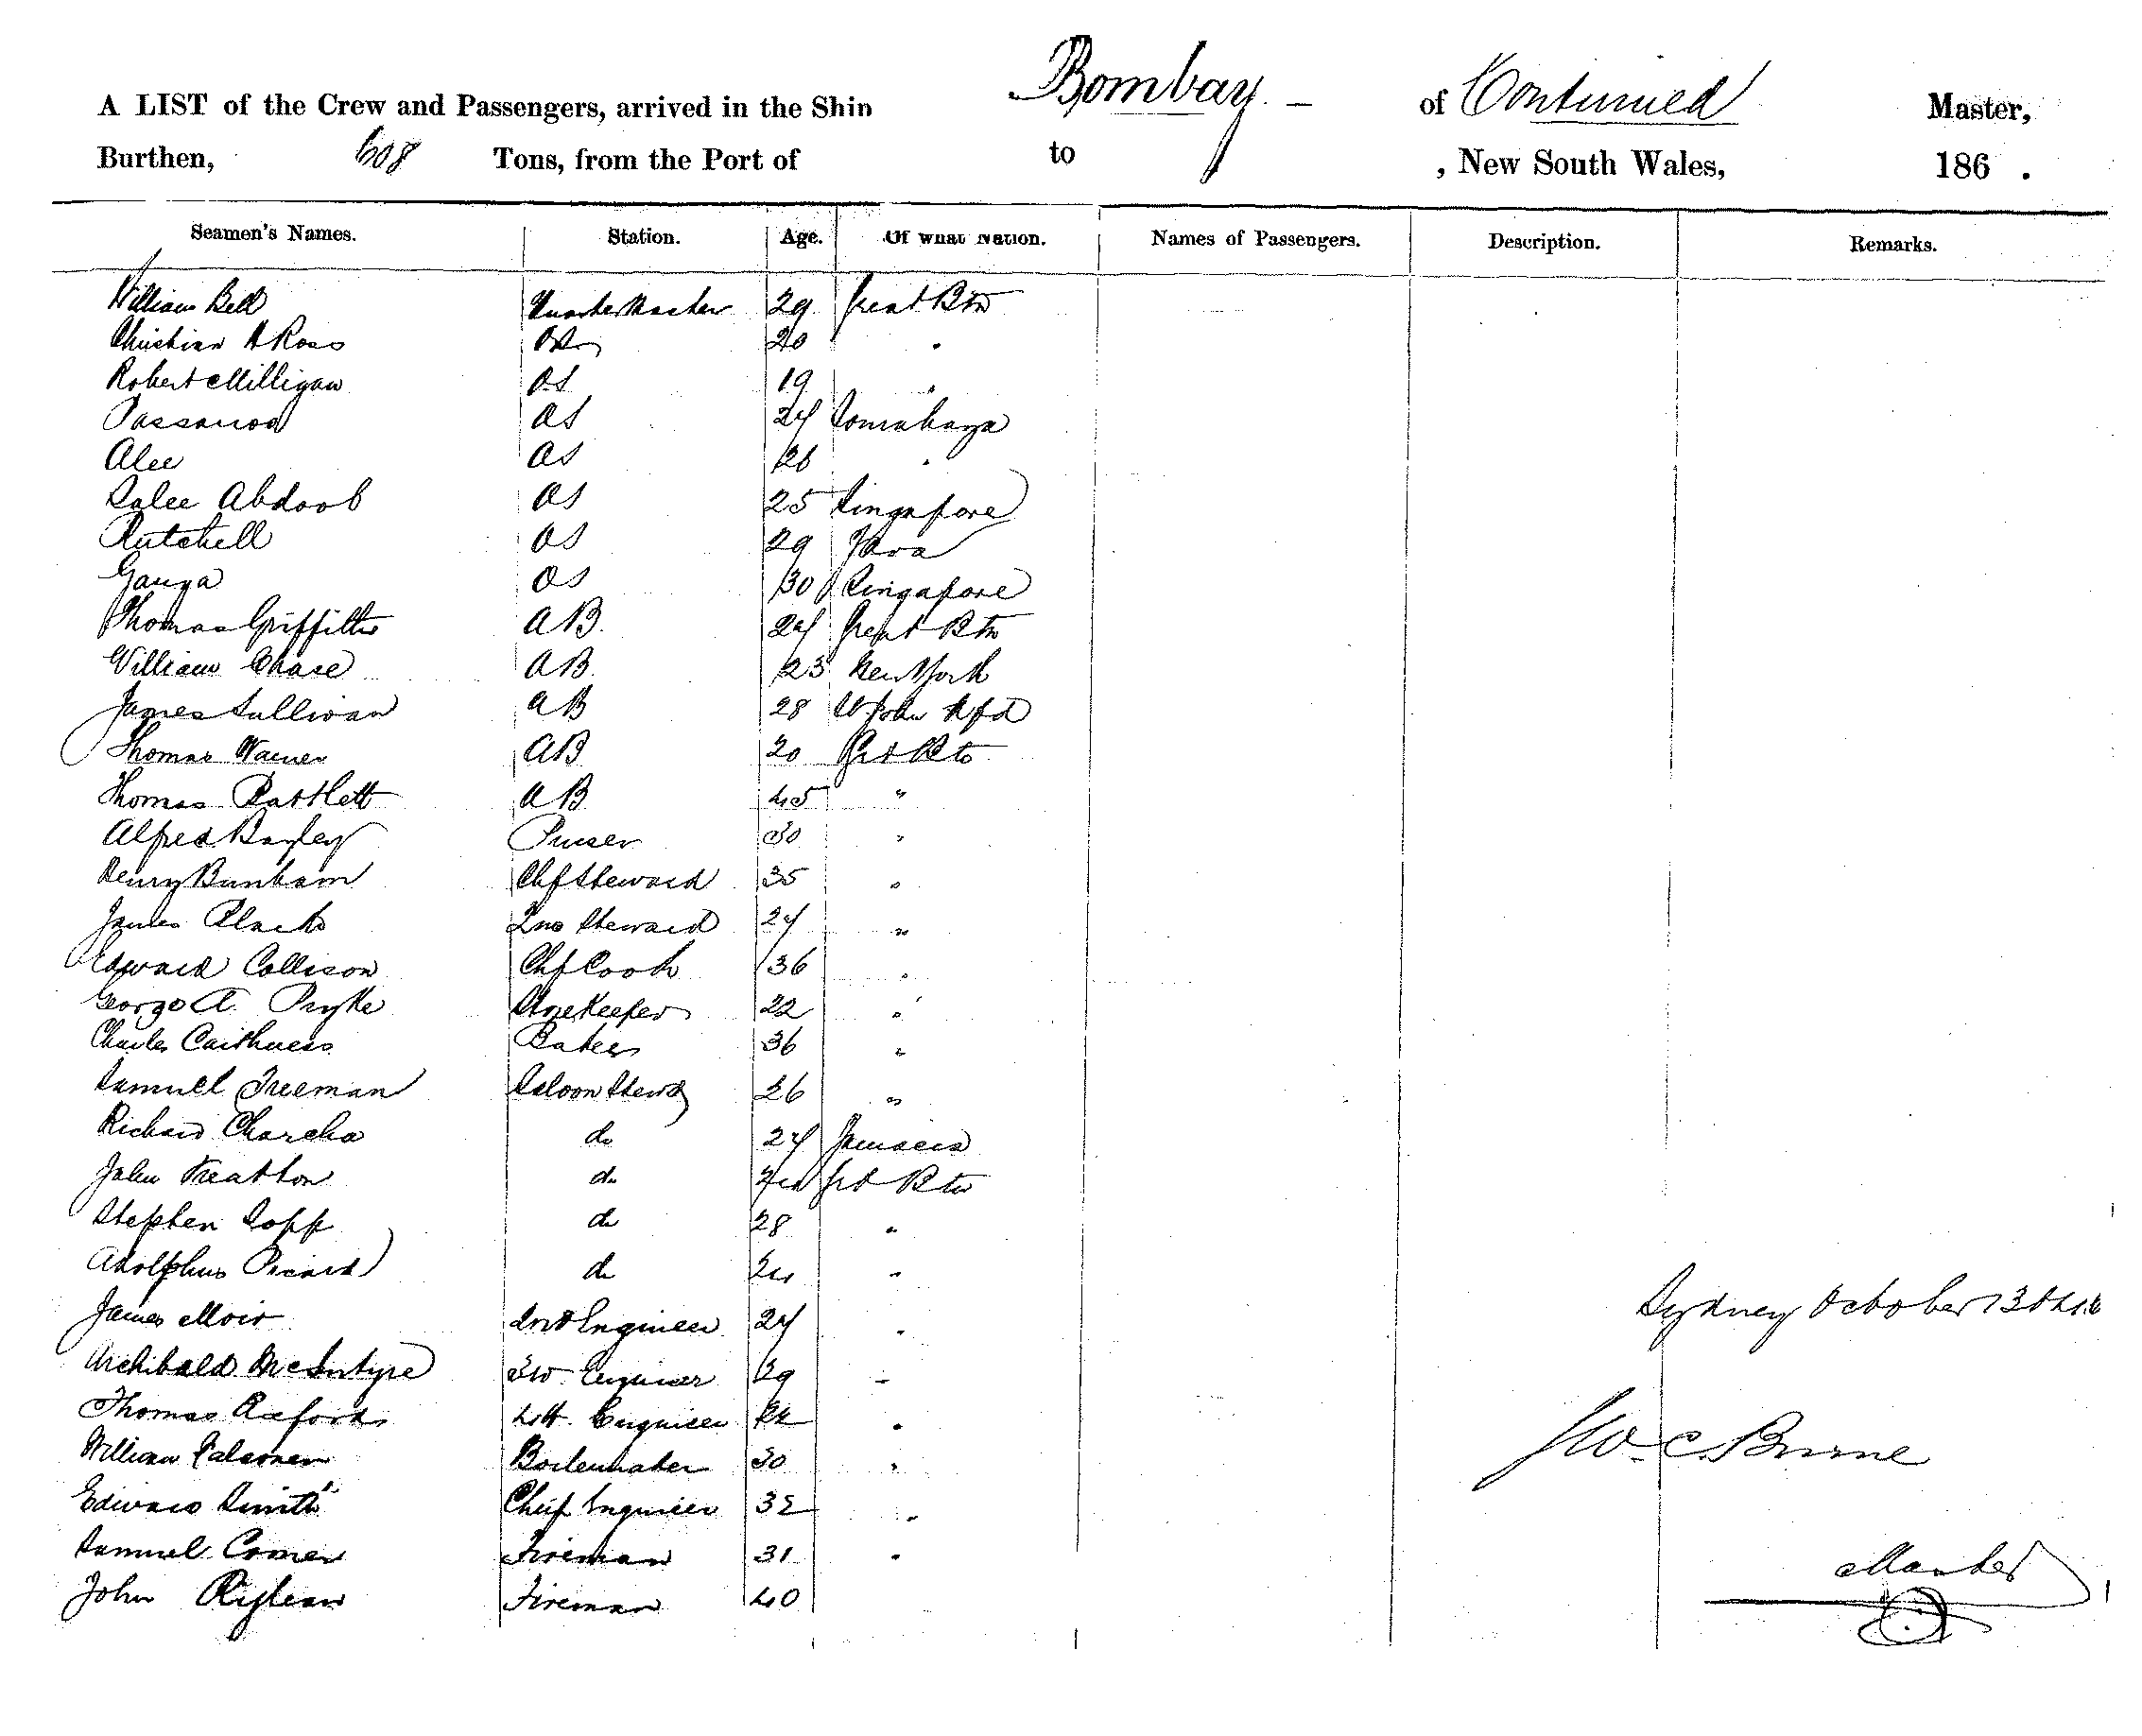 A LIST of the Crew and Passengers, arrived in the Ship Bombay – of Continued Master,
Burthen, 608 Tons, from the Port of to , New South Wales, 186 .
Seamen's Names. Station. Age. Of what Nation. Names of Passengers. Description. Remarks.
William Bell Quarter Master 29 Great Btn
Christian A Ross 20 "
Robert Milligan OS 19 "
OS 24 Sourabaya
Alee OS 26 "
Salee Abdoob OS 25 Singapore
Rutchell OS 29 Java
Ganga OS 30 Singapore
Thomas Griffiths AB. 24 Great Btn
William Chase AB. 23 New York
James Sullivan AB 28 St John Nfd
Thomas Warner AB 20 Grt Btn
Thomas Bartlett AB 45 "
Alfred Bayley Purser 30 "
Henry Bunham Chf Steward 35 "
James Black 2nd Steward 24 "
Edward Collison Chf Cook 36 "
George A. Pryke Storekeeper 22 "
Charles Caithness Baker 36 "
Samuel Freeman Saloon Stewd 26 "
Richard do 24 Jamaica
John Treatton do Grt Btn
Stephen Sopp do 28 "
Adolphus Picard do "
James Moir 2nd Engineer 24 "
Archibald McIntyre 3rd Engineer 29 "
Thomas Rexford 4th Engineer "
William Boilermaker 30 "
Edward Smith Cheif Engineer 32 "
Samuel Comer Fireman 31 "
John Fireman 40
Sydney October 13th
Jno C. Burne
Master